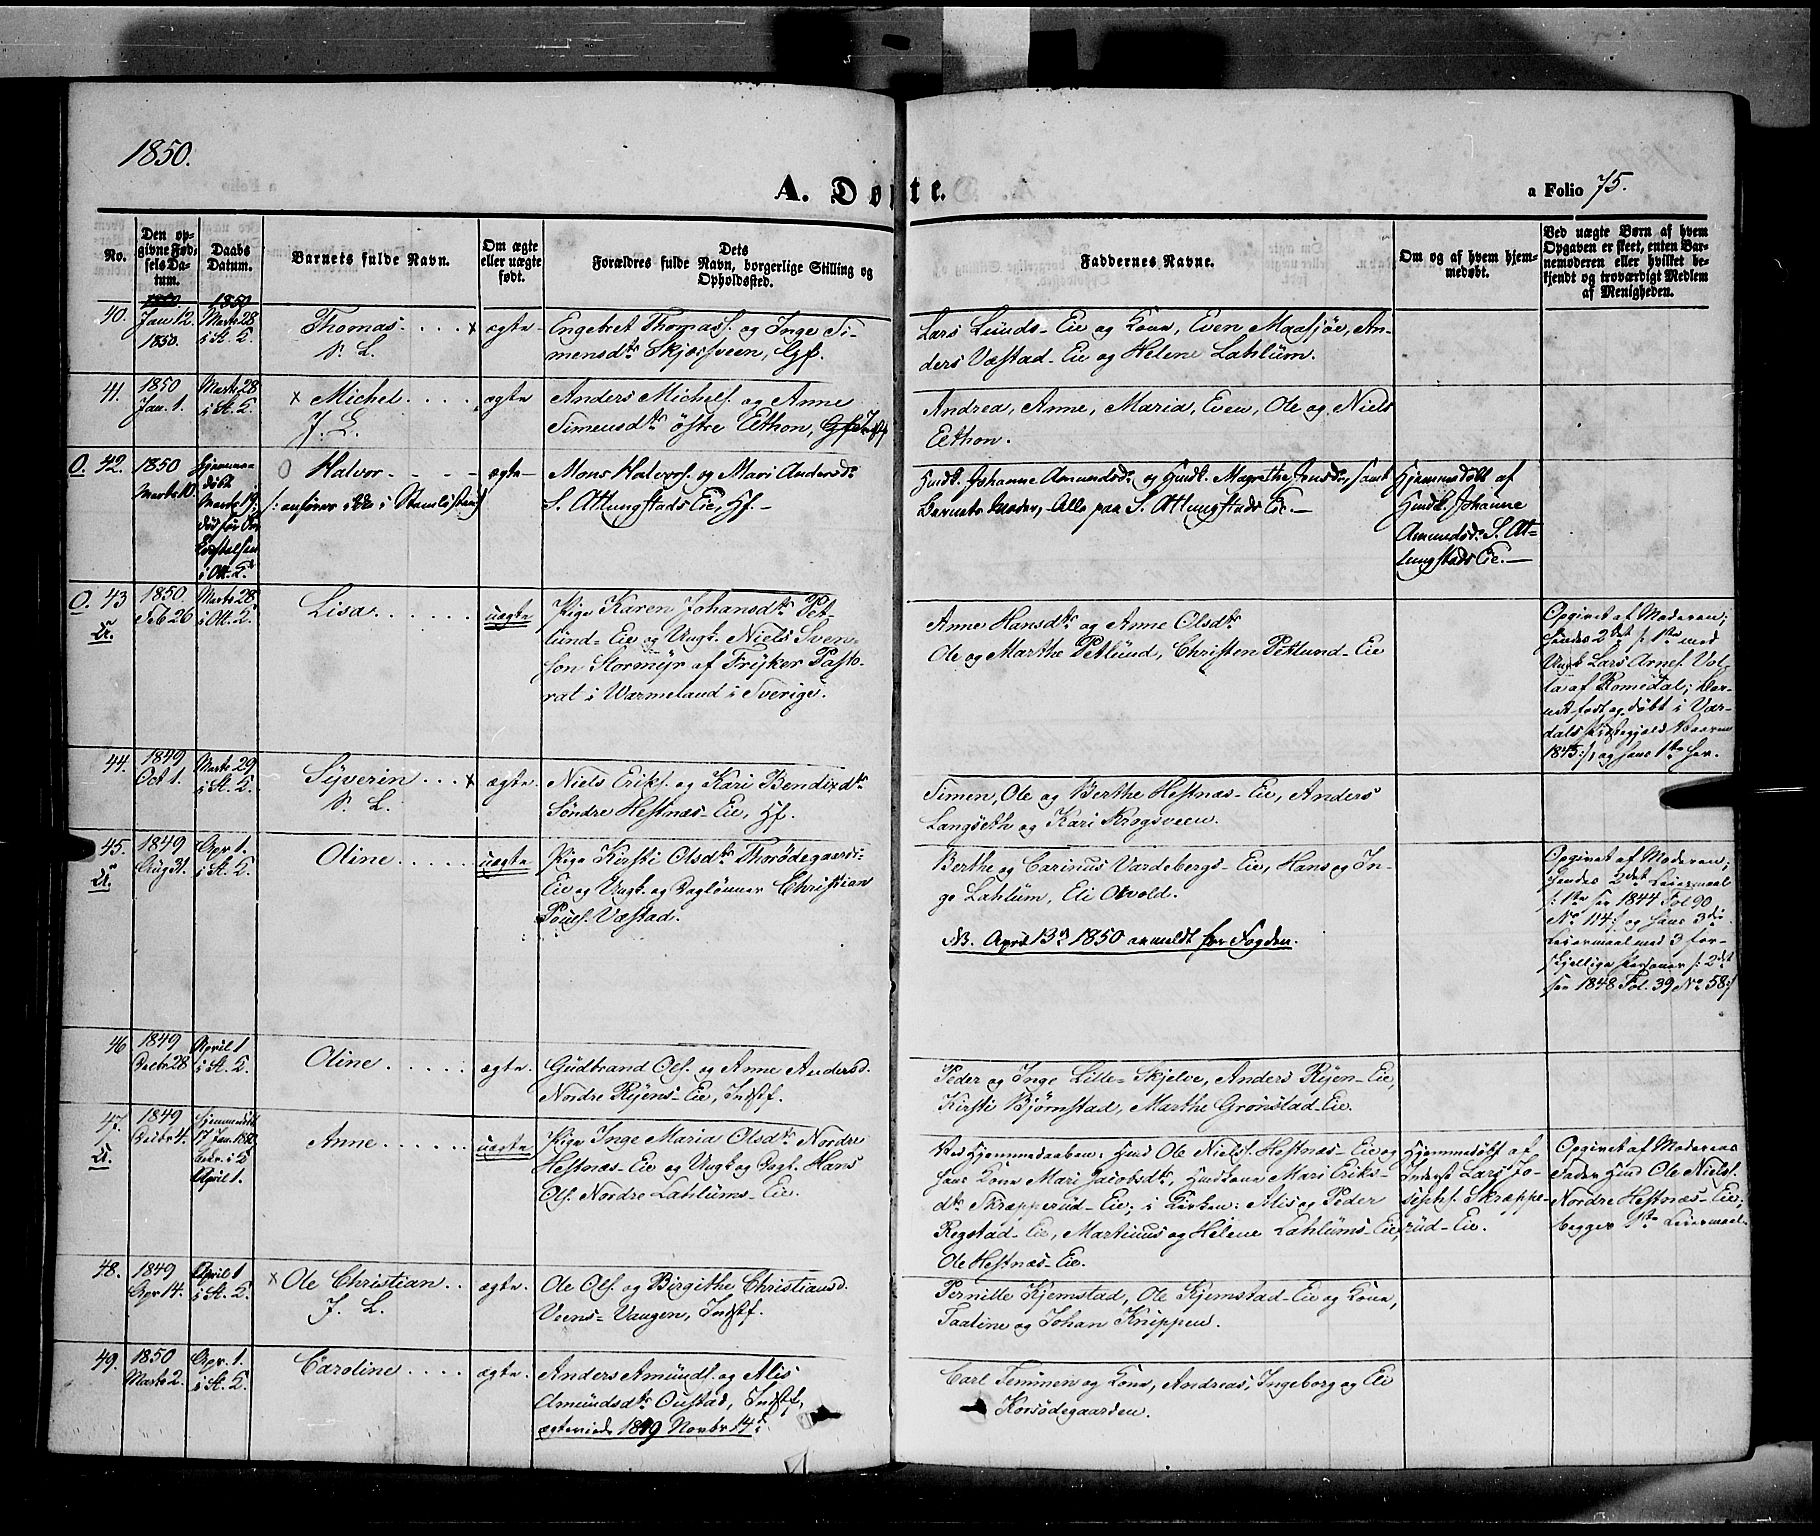 1850.
A. Døpte.
a Folio 75.
No.
Den op-
givne Fød-
sels Da-
tum.
Daabs
Datum.
Barnets fulde Navn.
Om ægte
eller uægte
født.
Dets
Forældres fulde Navn, borgerlige Stilling og
Opholdssted.
Faddernes Navne.
Om og af hvem hjem-
medøbt.
Ved uægte Børn af hvem
Opgaven er skeet, enten Bar-
nemoderen eller hvilket be-
kjendt og troværdigt Medlem
af Menigheden.
1850
1850
40.
Jan 12.
1850.
Marts 28
i St. K.
Thomas
V. L.
x ægte
Engebret Thomass. og Inge Si-
mensdtr Skjæsveen, Gf.
Lars Lunds-Eie og Kone, Even Maasjør, An-
ders Væstad-Eie og Helene Lahlum.
41.
1850
Jan. 1.
Marts 28
i St. K.
x Michel
J. L.
ægte
Anders Michels. og Anne
Simensdtr østre Eethon,
Andrea, Anne, Maria, Even, Ole og Niels
Eethon.
O. 42.
1850
Marts 10.
Hjemme
døbt
Marts 19,
død før
i Ott. K.
O Halvor
/: anføres ikke i Stamlisten :/
ægte
Mons Halvors. og Mari Andersdr
S. Atlungstads Eie, Hf.
Hustr. Johanne Amundsdr og Hustr. Magrethe Jensdr, samt
Barnets Moder, Alle paa S. Atlungstads Eie.
Hjemmedøbt af
Hustr. Johanne
Amundsdr S. At-
lungstads Eie.
O. 43
U.
1850
Feb 26
Marts 28
i Ott. K.
Lisa
uægte
Pige Karen Johansdtr Pet-
lund-Eie og Ungk. Niels Sven-
son Stormyr af Fryker Pasto-
rat i Warmeland i Sverige.
Anne Hansdtr og Anne Olsdtr
Ole og Marthe Petlund, Christen Petlund-Eie
Opgivet af Moderen;
hendes 2det /: 1ste med
Ungk Lars Arnes. Vol-
la af Romedal; Bar-
net født og døbt i Var-
dals Præstegjeld Vaaren
1845:/, og hans 1ste her.
44.
1849
Oct 1.
Marts 29
i St. K.
Syverin
V. L.
x ægte
Niels Eriks. og Kari Bendixdtr
Søndre Hestnæs-Eie, Hf.
Simen, Ole og Berthe Hestnæs-Eie, Anders
Langseth og Kari Krogsveen.
45.
U.
1849
Aug 31.
Apr 1.
i St. K.
Oline
uægte
Pige Kirsti Olsdtr Thorødegaard-
Eie og Ungk. og Daglønner Christian
Pouls. Væstad.
Berthe og Carinus Vardebergs-Eie, Hans og In-
ge Lahlum, Eli Opvold.
NB. April 13de 1850 anmeldt for Fogden.
Opgivet af Moderen;
hendes 2det Leiermaal
/: 1ste see 1844 Fol 90
No 114:/ og hans 3die
Leiermaal med 3 for-
skjellige Personer /: 2det
see 1848 Fol. 39 No 58:/
46
1849
Decbr 28
April 1
i St. K.
Oline
ægte
Gudbrand Ols. og Anne Andersd.
Nordre Ryens-Eie, Indstf.
Peder og Inge Lille-Skjelve, Anders Ryen-Eie,
Kirsti Bjørnstad, Marthe Grønstad-Eie.
47.
U.
1849
Decbr 4.
Hjemmedøbt
17 Jan. 1850,
April 1.
Anne
uægte
Pige Inge Maria Olsdtr Nordre
Hestnæs-Eie og Ungk og Dagl. Hans
Ols. Nordre Lahlums-Eie.
Ved Hjemmedaaben: Husmd Ole Niels. Hestnæs-Eie og
hans Kone Mari Jacobsdtr, Hustrue Mari Eriks-
dtr Skrapperud-Eie; i Kirken: Alis og Peder
Rogstad-Eie, Martinus og Helene Lahlums-Eie,
Ole Hestnæs-Eie.
Hjemmedøbt af
Inderst Lars Jo-
sephs. Skrappe-
rud-Eie.
Opgivet af Moderens
Fader Husmd Ole Niels.
Nordre Hestnæs-Eie;
begges 1ste Leiermaal.
48.
1849
Apr 14.
April 1
i St. K.
x Ole Christian
J. L.
ægte.
Ole Ols. og Birgithe Christiansd.
Veens-Vangen, Indstf.
Pernille Kjemstad, Ole Kjemstad-Eie og Kone,
Taaline og Johan Knippen.
49.
1850
Marts 2.
Apr. 1.
i St. K.
Caroline
ægte.
Anders Amunds. og Alis
Amundsdtr Oustad, Indstf,
ægteviede 1849 Novbr 14de
Carl Temmen og Kone, Andreas, Ingeborg og Eli
Korsødegaarden.